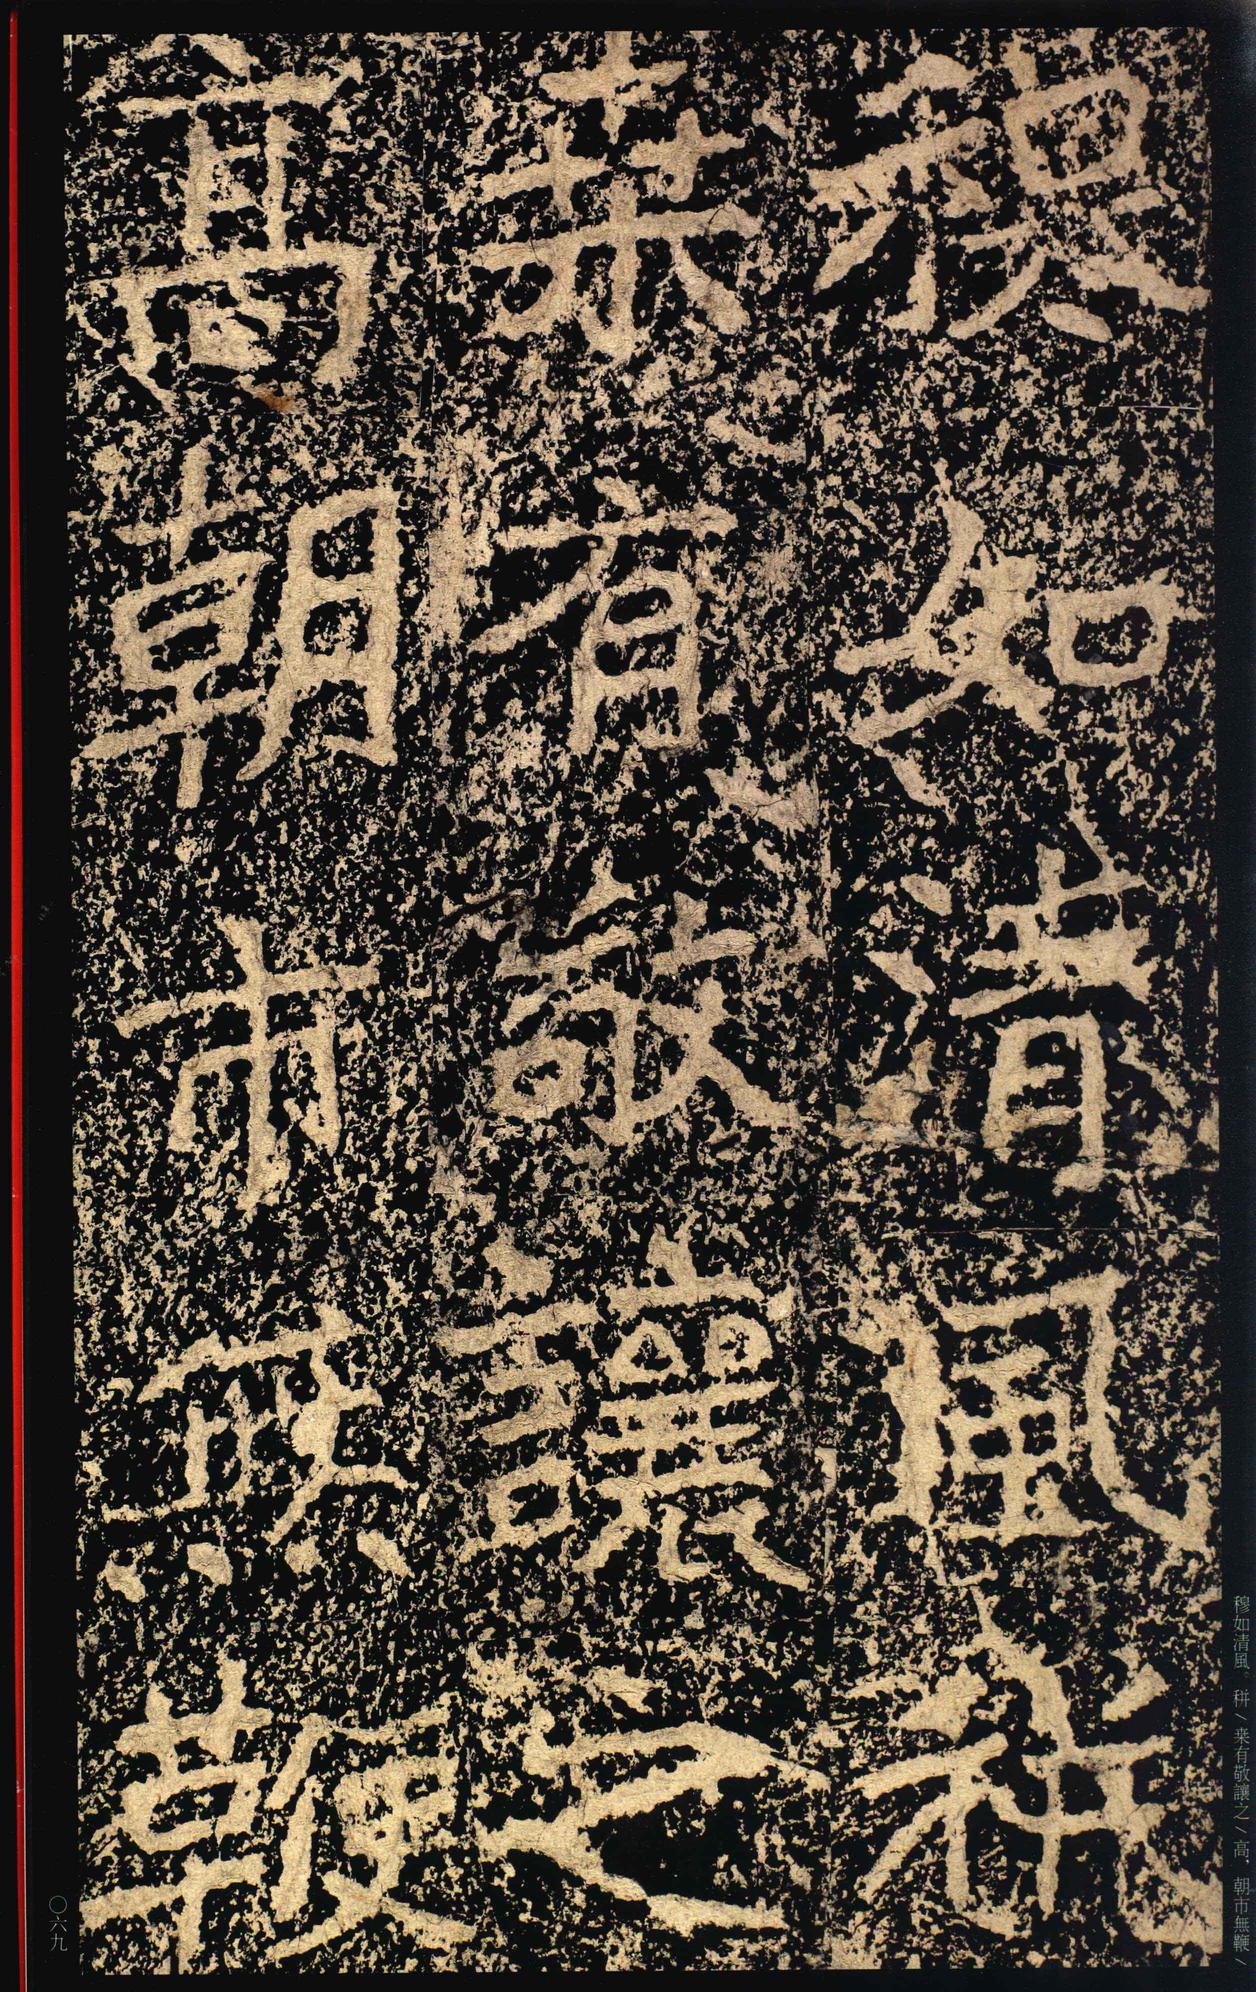 穆如清風耕
桒有敬讓之
高朝市無鞭
穆如清風。耕/桒有敬讓之/高，朝市無鞭/
〇六九